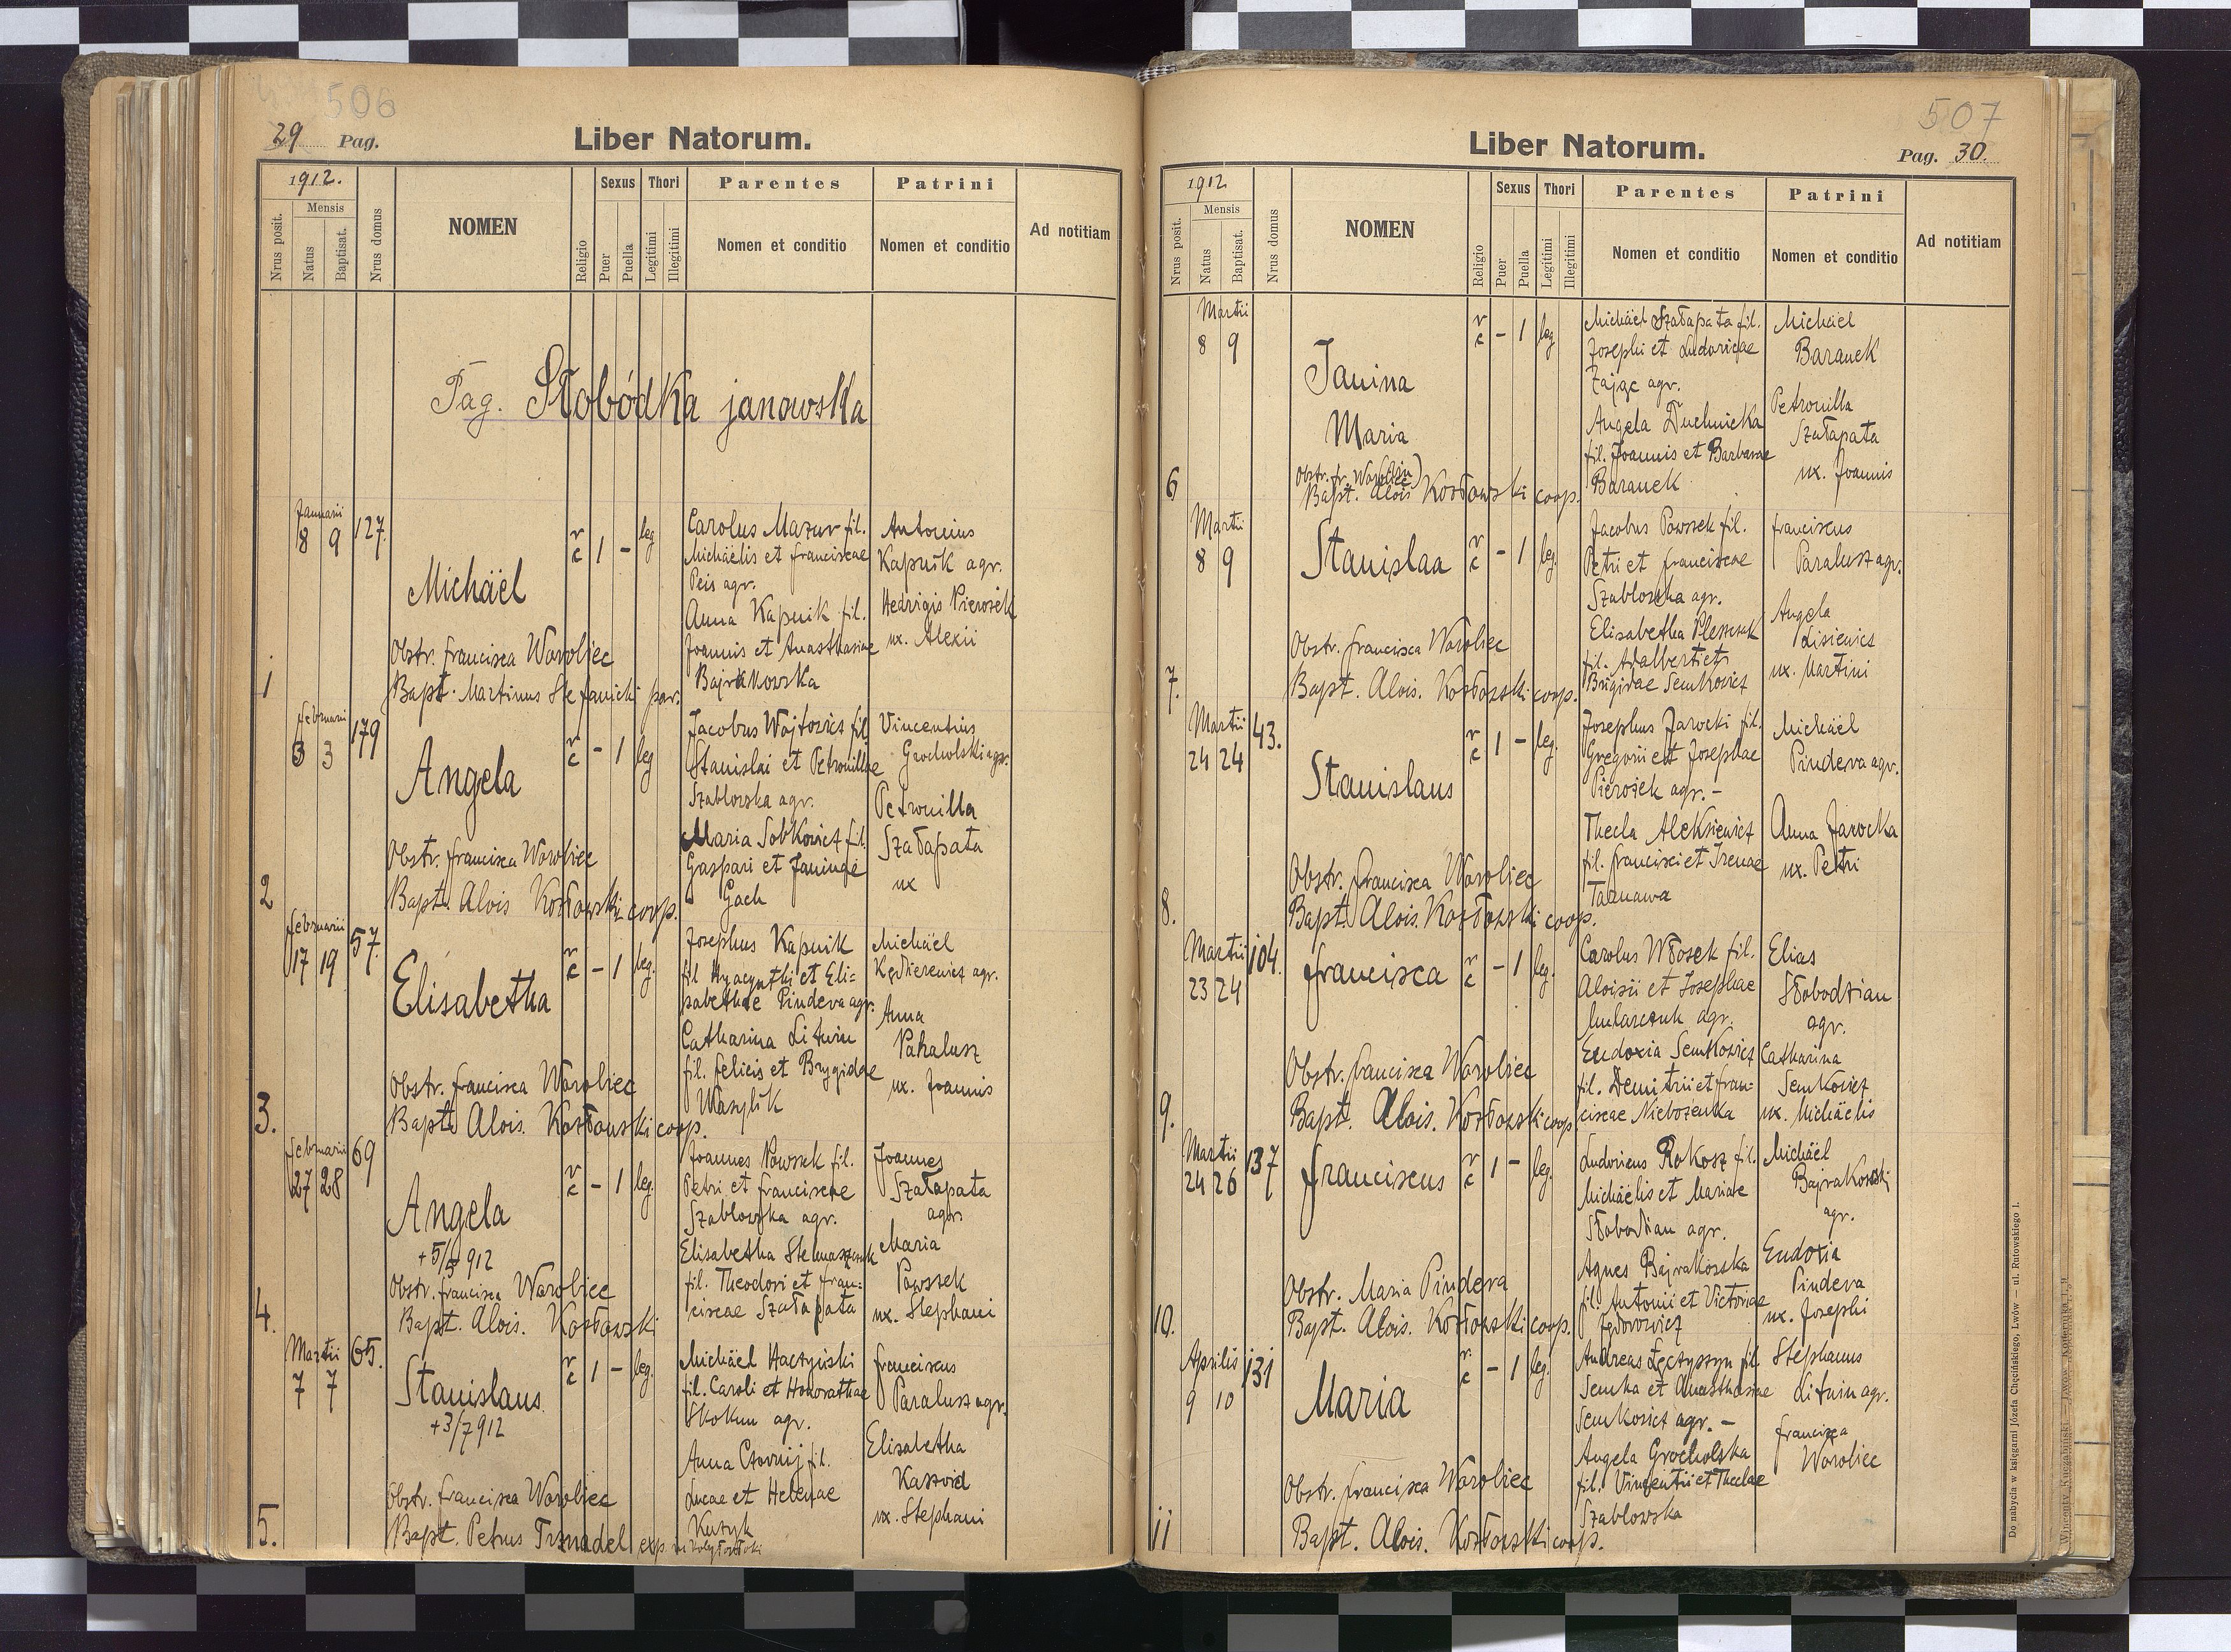 506
29 Pag.
Liber Natorum.
1912.
Nrus posit.
Mensis
Natus
Baptisat.
Nrus domus
NOMEN
Religio
Sexus
Puer
Puella
Thori
Legitimi
Illegitimi
Parentes
Nomen et conditio
Patrini
Nomen et conditio
Ad notitiam
Pag. Słobódka janowska
1
Januarii
8 9 127.
Michäel
r c 1 - leg
Obstr. Francisca Woroliec
Bapt. Martinus Stefanicki par.
Carolus Mazur fil.
Michäelis et Franciscae
Peis agr.
Anna Kapnik fil.
Joannis et Anasthasiae
Bajrakowska
Antonius
Kapnik agr.
Hedvigis Pierożek
ux. Alexii
2
Februarii
3 3 179
Angela
r c - 1 leg
Obstr. Francisca Woroliec
Bapt. Alois Kozłowski coop.
Jacobus Wójtowicz fil
Stanislai et Petronillae
Szablowska agr.
Maria Sobkowicz fil.
Gaspari et
Gach
Vincentius
Grocholski agr.
Petronilla
Szałapata
ux
3.
Februarii
17 19 57.
Elisabetha
r c - 1 leg.
Obstr. Francisca Woroliec
Bapt. Alois. Kozłowski coop.
Josephus Kapnik
fil Hyacynthi et Eli=
sabethae Pindera agr.
Catharina Lituin
fil. Felicis et Brygidae
Wasylik
Michäel
agr.
Anna
Pahalusz
ux. Joannis
4.
Februarii
27 28 69
Angela
+5/5 912
r c - 1 leg.
Obstr. Francisca Woroliec
Bapt. Alois. Kozłowski
Joannes Powszek fil.
Petri et Franciscae
Szablowska agr.
Elisabetha Stelmaszczuk
fil. Theodori et Fran=
ciscae Szałapata
Joannes
Szałapata
agr.
Maria
Powszek
ux. Stephani
5.
Martii
7 7 65.
Stanislaus
+3/7 912
r c 1 - leg.
Obstr. Francisca Woroliec
Bapt. Petrus Trznadel exp.
Michäel Haczyński
fil. Caroli et Honorathae
Skokun agr.
Anna fil.
Lucae et Helenae
Kuzyk
Franciscus
Paralusz agr.
Elisabetha
Kaszoid
ux. Stephani
507
Liber Natorum.
Pag. 30.
1912
Nrus posit.
Mensis
Natus
Baptisat.
Nrus domus
NOMEN
Religio
Sexus
Puer
Puella
Thori
Legitimi
Illegitimi
Parentes
Nomen et conditio
Patrini
Nomen et conditio
Ad notitiam
6
Martii
8 9
Janina
Maria
r c - 1 leg
Obstr. fr. Woroliec
Bapt. Alois Kozłowski coop.
Michäel Szałapata fil.
Josephi et Ludovicae
Zając agr.
Angela Duchnicka
fil. Joannis et Barbarae
Baranek
Michäel
Baranek
Petronilla
Szałapata
ux. Joannis
7.
Martii
8 9
Stanislaa
r c - 1 leg.
Obstr. Francisca Woroliec
Bapt. Alois. Kozłowski coop.
Jacobus Powszek fil.
Petri et Franciscae
Szablowska agr.
Elisabetha
fil. Adalberti et
Brigidae Senkowicz
Franciscus
Paralusz agr.
Angela
Lisiewicz
ux. Martini
8.
Martii
24 24 43.
Stanislaus
r c 1 - leg.
Obstr. Francisca Woroliec
Bapt. Alois. Kozłowski coop.
Josephus Jarocki fil.
Gregorii et Josephae
Pierożek agr. -
Thecla Aleksiewicz
fil. Francisci et Irenae
Taznawa
Michäel
Pindera agr.
Anna Jarocka
ux. Petri
9.
Martii
23 24 104.
Francisca
r c - 1 leg.
Obstr. Francisca Woroliec
Bapt. Alois. Kozłowski coop
Carolus Włosek fil.
Aloisii et Josephae
agr.
Eudoxia Semkowicz
fil. Demitrii et Fran=
ciscae Niebożenka
Elias
Słobodzian
agr.
Catharina
Semkowicz
ux. Michäelis
10.
Martii
24 26 137
Franciscus
r c 1 - leg.
Obstr. Maria Pindera
Bapt. Alois. Kozłowski coop.
Ludovicus Rokosz fil.
Michäelis et Mariae
Słobodzian agr.
Agnes Bajrakowska
fil. Antonii et Victoriae
Fedorowicz
Michäel
Bajrakowski
agr.
Eudoxia
Pindera
ux. Josephi
11
Aprilis
9 10 131
Maria
r c - 1 leg.
Obstr. Francisca Woroliec
Bapt. Alois. Kozłowski coop.
Andreas Łęczyszyn fil
Semka et Anasthasiae
Semkowicz agr. -
Angela Grocholska
fil. Vincentii et Theclae
Szablowska
Stephanus
Lituin agr.
Francisca
Woroliec
Do nabycia w księgarni Józefa Chęcińskiego, Lwów — ul. Rutowskiego 1.